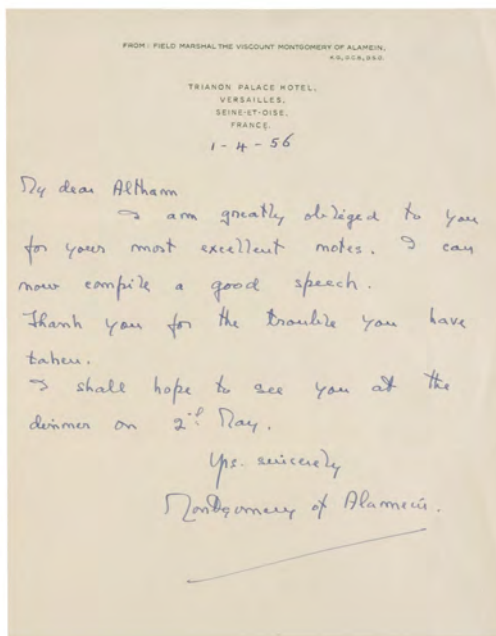 FROM: FIELD MARSHAL THE VISCOUNT MONTGOMERY OF ALAMEIN,
K.G., G.C.B., D.S.O.
TRIANON PALACE HOTEL,
VERSAILLES,
SEINE-ET-OISE,
FRANCE.
1-4-56
My dear Altham
I am greatly obliged to you
for your most excellent notes. I can
now compile a good speech.
Thank you for the trouble you have
taken.
I shall hope to see you at the
dinner on 2nd May.
Yrs. sincerely
Montgomery of Alamein.